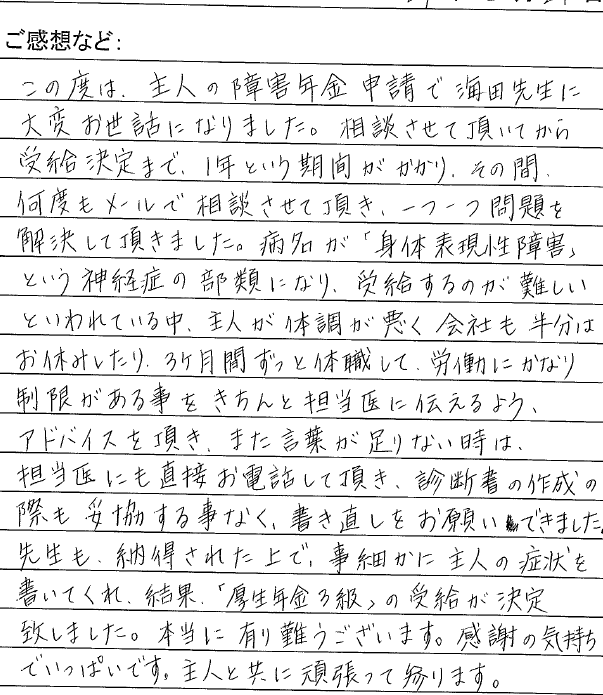 ご感想など:
この度は、主人の障害年金申請で海田先生に
大変お世話になりました。相談させて頂いてから
受給決定まで、1年という期間がかかり、その間、
何度もメールで相談させて頂き、一つ一つ問題を
解決して頂きました。病名が「身体表現性障害」
という神経症の部類になり、受給するのが難しい
といわれている中、主人が体調が悪く会社も半分は
お休みしたり、3ケ月間ずっと休職して、労働にかなり
制限がある事をきちんと担当医に伝えるよう、
アドバイスを頂き、また言葉が足りない時は、
担当医にも直接お電話して頂き、診断書の作成の
際も妥協する事なく、書き直しをお願いできました。
先生も、納得された上で、事細かに主人の症状を
書いてくれ、結果、「厚生年金3級」の受給が決定
致しました。本当に有り難うございます。感謝の気持ち
でいっぱいです。主人と共に頑張って参ります。